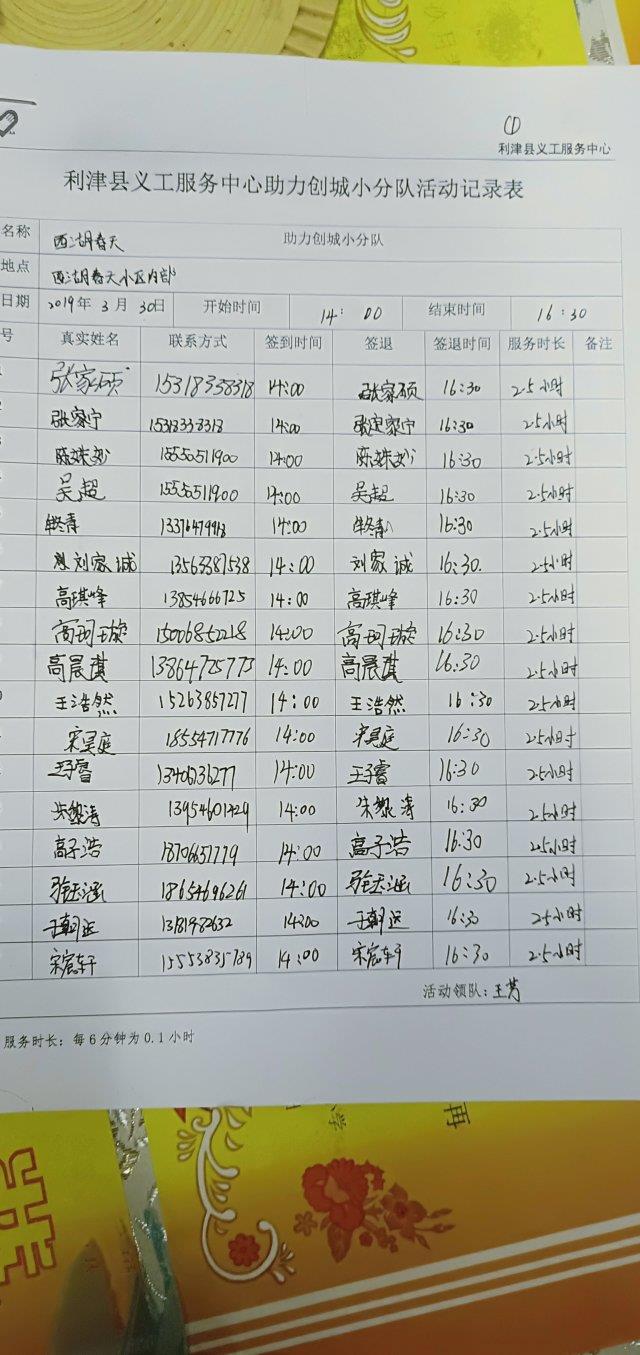 ①
利津县义工服务中心
利津县义工服务中心助力创城小分队活动记录表
名称 西湖春天 助力创城小分队
地点 西湖春天小区内部
日期 2019年 3月 30日 开始时间 14:00 结束时间 16:30
号 真实姓名 联系方式 签到时间 签退 签退时间 服务时长 备注
张家硕 15318338318 14:00 张家硕 16:30 2.5小时
张家宁 15318338318 14:00 张家宁 16:30 2.5小时
15550511900 14:00 16:30 2.5小时
吴超 15550511900 14:00 吴超 16:30 2.5小时
牟冬青 13376479913 14:00 牟冬青 16:30 2.5小时
刘家诚 13563387538 14:00 刘家诚 16:30. 2.5小时
高琪峰 13854666725 14:00 高琪峰 16:30 2.5小时
高珂璇 15006852218 14:00 高珂璇 16:30 2.5小时
高晨淇 13864725773 14:00 高晨淇 16:30 2.5小时
王浩然 15263857277 14:00 王浩然 16:30 2.5小时
宋昊庭 18554717776 14:00 宋昊庭 16:30 2.5小时
王子睿 13406136277 14:00 王子睿 16:30 2.5小时
13954601429 14:00 16:30 2.5小时
高子浩 18706651779 14:00 高子浩 16:30 2.5小时
18654696261 14:00 16:30 2.5小时
13181982632 14:00 16:30 2.5小时
宋宏轩 15553835789 14:00 宋宏轩 16:30 2.5小时
活动领队：王芳
服务时长：每6分钟为0.1小时
再